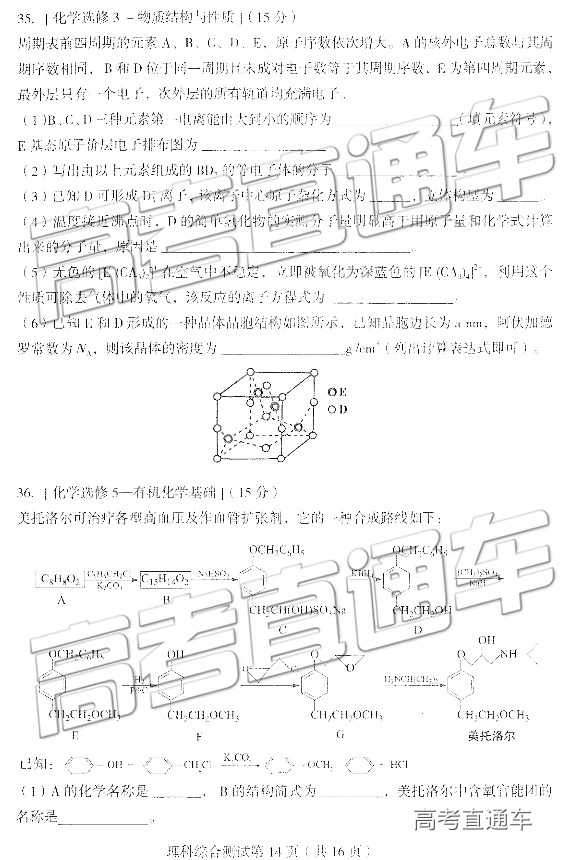 35. [化学选修3-物质结构与性质](15分)
周期表前四周期的元素A、B、C、D、E，原子序数依次增大。A的核外电子总数与其周
期序数相同，B和D位于同一周期且未成对电子数等于其周期序数，E为第四周期元素，
最外层只有一个电子，次外层的所有轨道均充满电子。
(1)B、C、D三种元素第一电离能由大到小的顺序为________(填元素符号)，
E基态原子价层电子排布图为________
(2)写出由以上元素组成的BD₂的等电子体的分子________
(3)已知D可形成D₃离子，该离子中心原子杂化方式为______，立体构型为______。
(4)温度接近沸点时，D的简单氢化物的实测分子量明显高于用原子量和化学式计算
出来的分子量，原因是________
(5)无色的[E(CA₃)₂]⁺在空气中不稳定，立即被氧化为深蓝色的[E(CA₃)₄]²⁺，利用这个
性质可除去气体中的氧气，该反应的离子方程式为________
(6)已知E和D形成的一种晶体晶胞结构如图所示，已知晶胞边长为a nm，阿伏加德
罗常数为Nₐ，则该晶体的密度为________g/cm³(列出计算表达式即可)。
E
D
36. [化学选修5—有机化学基础](15分)
美托洛尔可治疗各型高血压及作血管扩张剂，它的一种合成路线如下：
OCH₂C₆H₅
C₈H₈O₂ C₆H₅CH₂Cl K₂CO₃ C₁₅H₁₄O₂ NaHSO₃
A B
CH₂CH(OH)SO₃Na
C
KBH₄
OCH₂C₆H₅
CH₂CH₂OH
D
(CH₃)₂SO₄
NaH
OCH₂C₆H₅
CH₂CH₂OCH₃
E
H₂
Pd/C
OH
CH₂CH₂OCH₃
F
O Cl
O O
CH₂CH₂OCH₃
G
H₂NCH(CH₃)₂
O OH NH
CH₂CH₂OCH₃
美托洛尔
已知： OH + CH₂Cl K₂CO₃ OCH₂ + HCl
(1)A的化学名称是______，B的结构简式为________，美托洛尔中含氧官能团的
名称是________。
理科综合测试第14页(共16页)
高考直通车
高考直通车
高考直通车